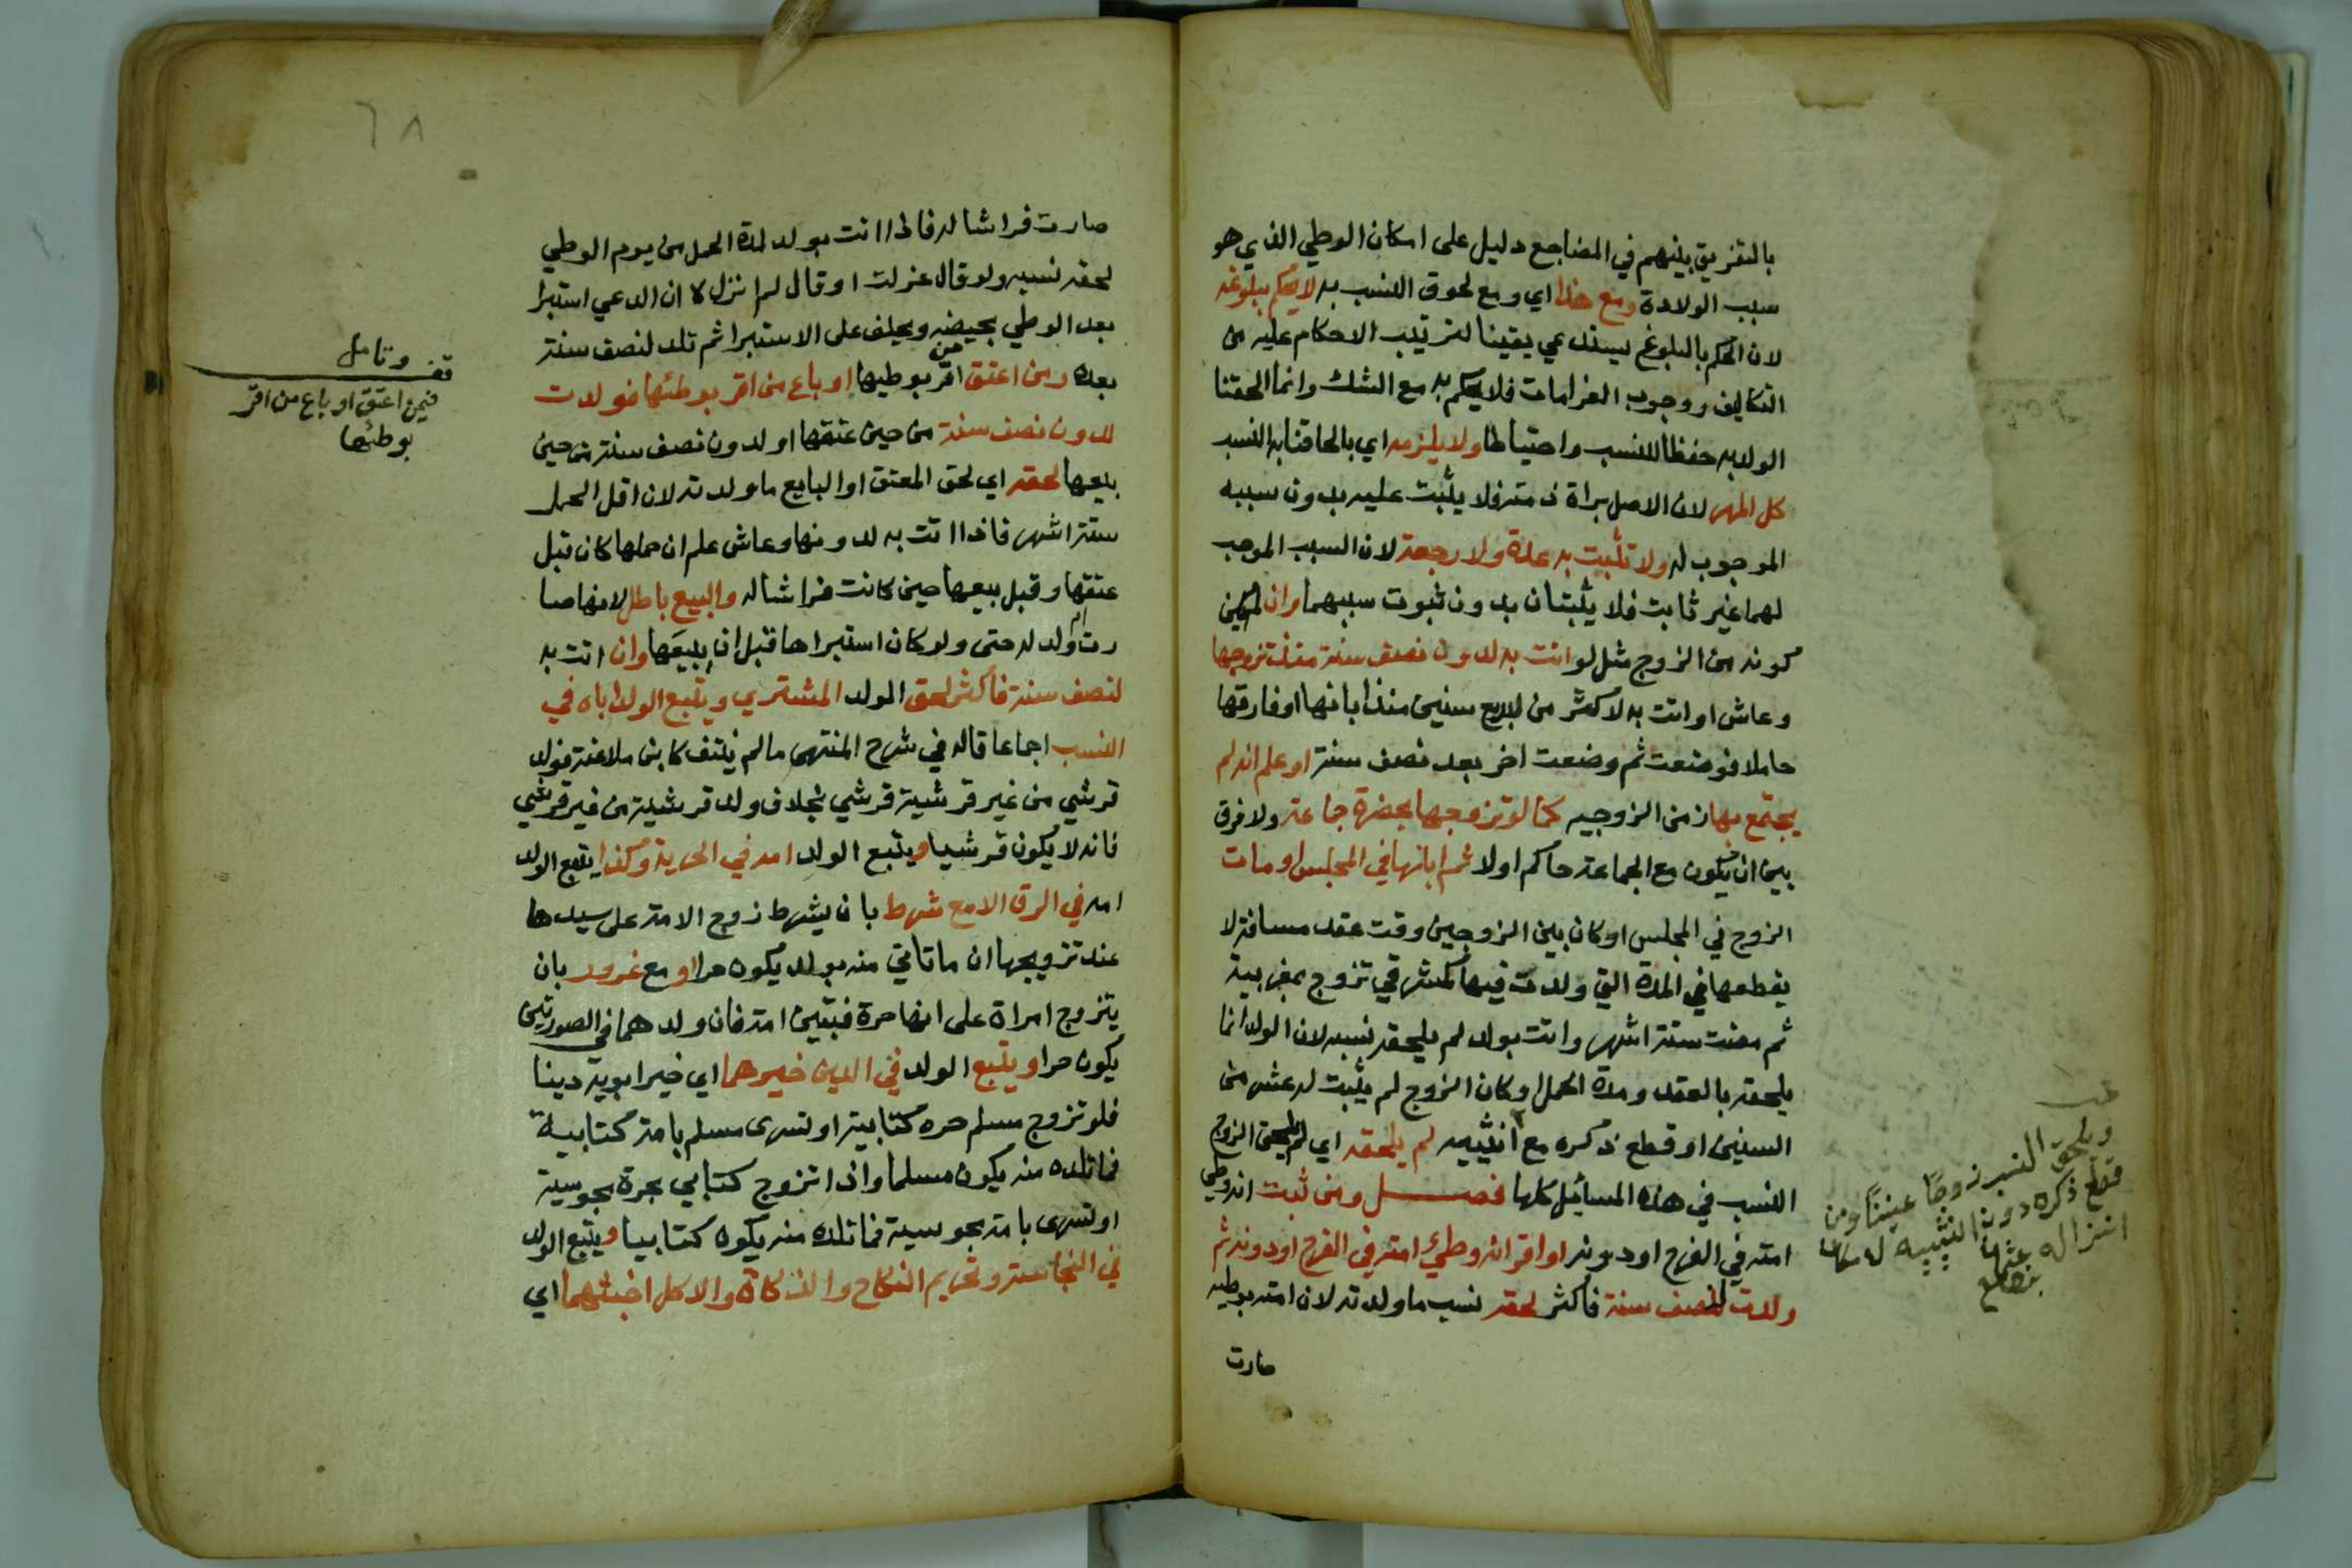 بالتفريق بينهم في المضاجع دليل على امكان الوطي الذي هو
سبب الولادة ومع هذا اي ومع لحوق النسب به لا يحكم ببلوغه
لان الحكم بالبلوغ يستدعي يقينا لترتيب الاحكام عليه من
التكاليف ووجوب الغرامات فلا يحكم به مع الشك وانما الحقنا
الولد به حفظا للنسب واحتياطا ولا يلزمه اي بالحاقنا به النسب
كل المهر لان الاصل براة ذمته فلا يثبت عليه بدون سببه
الموجوب له ولا تثبت به عدة ولا رجعة لان السبب الموجب
لهما غير ثابت فلا يثبتان بدون ثبوت سببهما وان لم يمكن
كونه من الزوج مثل لو اتت به لدون نصف سنة منذ تزوجها
وعاش او اتت به لاكثر من اربع سنين منذ ابانها او فارقها
حاملا فوضعت ثم وضعت اخر بعد نصف سنة او علم انه لم
يجتمع بها زمن الزوجيه كما لو تزوجها بحضرة جماعة ولا فرق
بين ان يكون مع الجماعة حاكم اولا ثم ابانها في المجلس او مات
الزوج في المجلس او كان بين الزوجين وقت عقد مسافة لا
يقطعها في المدة التي ولدت فيها كمشرقي تزوج بمغربية
ثم مضت ستة اشهر واتت بولد لم يلحقه نسبه لان الولد انما
يلحقه بالعقد ومدة الحمل او كان الزوج لم يثبت له عشر من
السنين او قطع ذكره مع انثييه لم يلحقه اي لم يلحق الزوج
النسب في هذه المسائل كلها فصل ومن ثبت انه وطي
امته في الفرج او دونه او اقر انه وطي امته في الفرج او دونه ثم
ولدت لنصف سنة فاكثر لحقه نسب ما ولدته لان امته بوطيه
صارت
ويلحق النسب زوجا عنينا ومن
قطع ذكره دون انثييه لامكان
انزاله
٦٨
صارت فراشا له فاذا اتت بولد لمدة الحمل من يوم الوطي
لحقه نسبه ولو قال عزلت او قال لم انزل لا ان ادعي استبرا
بعد الوطي بحيضه ويحلف على الاستبرا ثم تلد لنصف سنة
بعده ومن اعتق من اقر بوطيها او باع من اقر بوطئها فولدت
لدون نصف سنة من حين عتقها او لدون نصف سنة من حين
بيعها لحقه اي لحق المعتق او البايع ما ولدته لان اقل الحمل
ستة اشهر فاذا اتت به لدونها وعاش علم ان حملها كان قبل
عتقها وقبل بيعها حين كانت فراشا له والبيع باطل لانها صا
رت ام ولد له حتى ولو كان استبراها قبل ان يبيعها وان اتت به
لنصف سنة فاكثر لحق المولد المشتري ويتبع الولد اباه في
النسب اجماعا قاله في شرح المنتهى ما لم ينتف كابن ملاعنة فولد
قرشي من غير قرشية قرشي بخلاف ولد قرشية من غير قرشي
فانه لا يكون قرشيا ويتبع الولد امه في الحرية وكذا يتبع الولد
امه في الرق الا مع شرط بان يشرط زوج الامة على سيدها
عند تزويجها ان ما تاتي منه بولد يكون حرا او مع غرور بان
يتزوج امراة على انها حرة فتبين امة فان ولدهما في الصورتين
يكون حرا ويتبع الولد في الدين خيرهما اي خير ابويه دينا
فلو تزوج مسلم حره كتابية او تسرى مسلم بامة كتابية
فما تلده منه يكون مسلما واذا تزوج كتابي بحرة مجوسية
او تسرى بامة مجوسية فما تلده منه يكون كتابيا ويتبع الولد
في النجاسة وتحريم النكاح والذكاة والاكل اخبثهما اي
قف وتامل
فيمن اعتق او باع من اقر
بوطئها